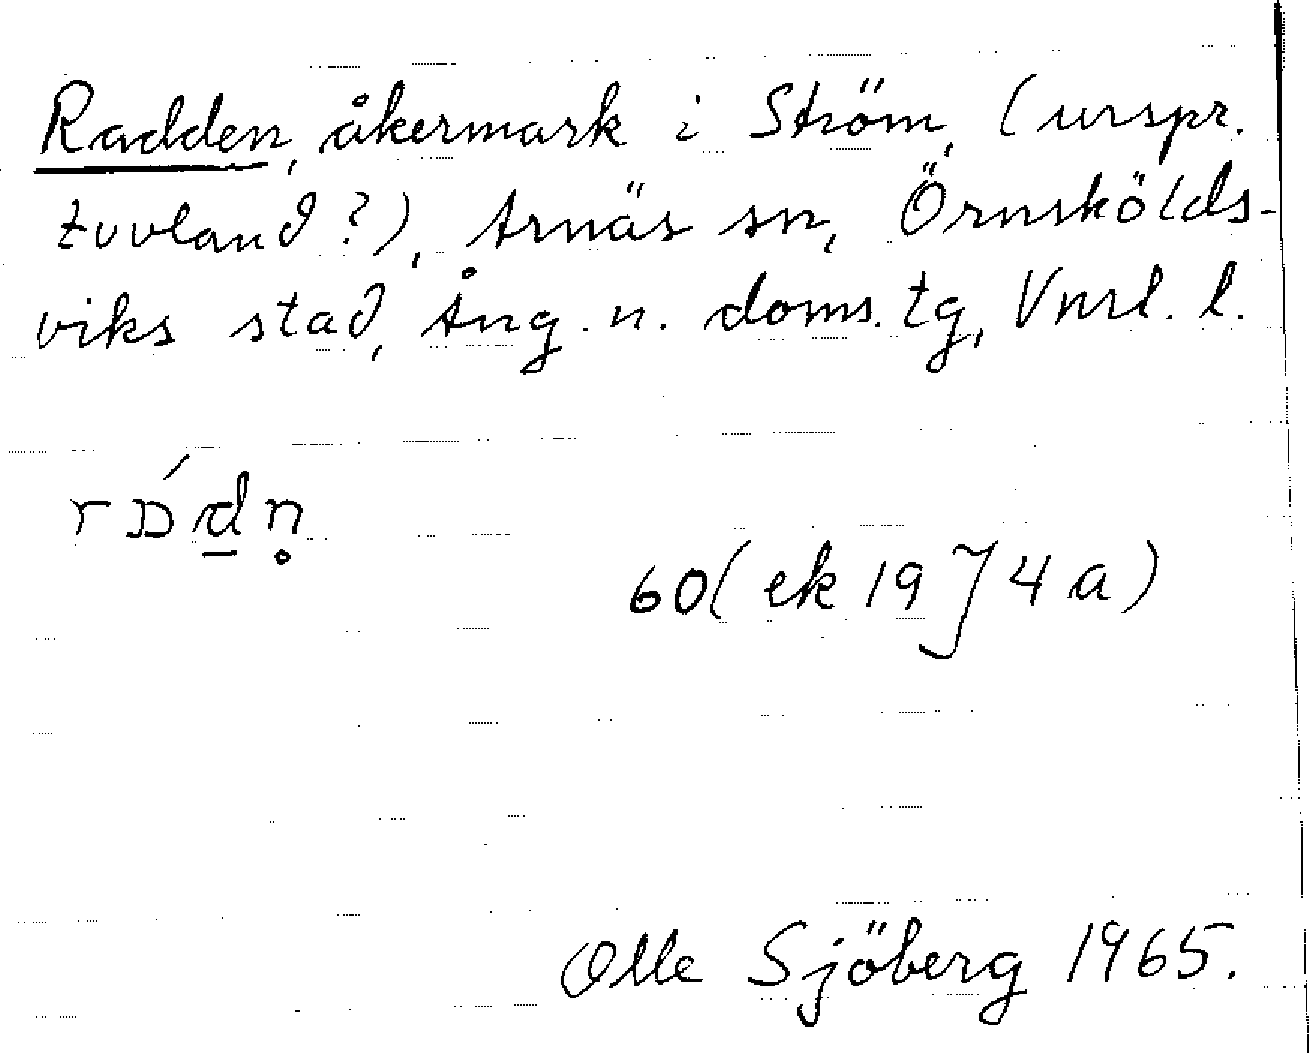 Radden, åkermark i Ström, (urspr.
tuvland?), Arnäs sn, Örnskölds-
viks stad, Ång. n. doms. tg, Vnrl. l.
60(ek 19 J 4 a)
Olle Sjöberg 1965.